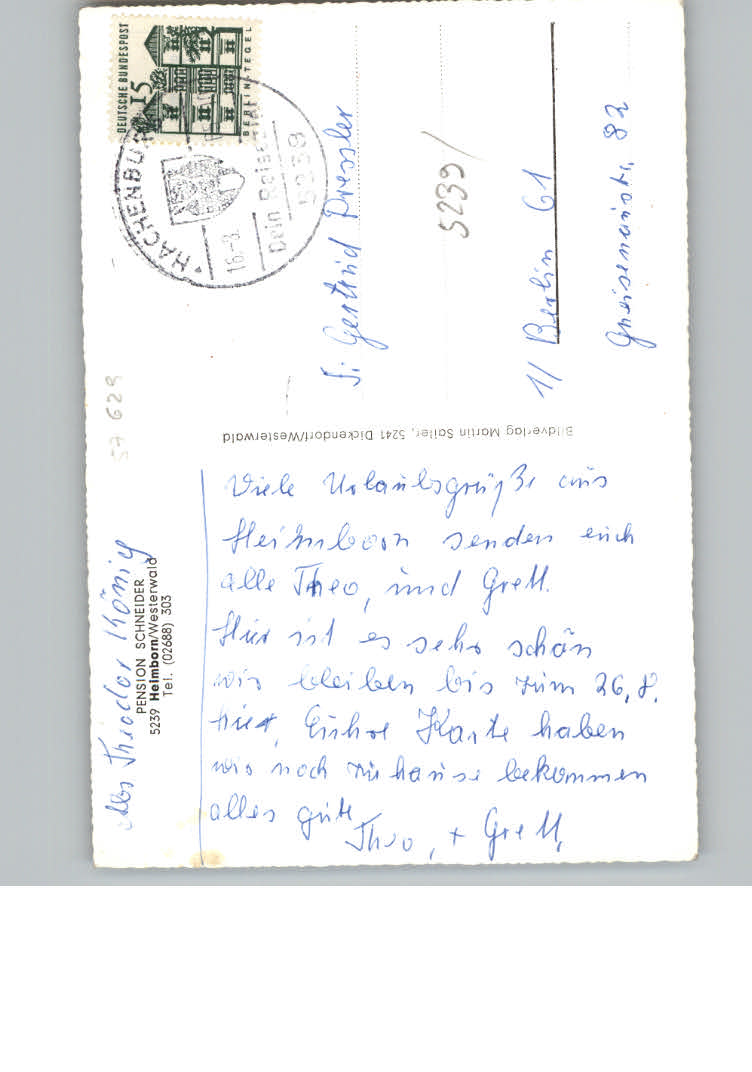 DEUTSCHE BUNDESPOST
15
BERLIN-TEGEL
HACHENBURG
16.-8.
Dein Reise
5239
Gertrud Pressler
5239/
1/ Berlin 61
Gneisenaustr. 82
57 629
Bildverlag Martin Sailer, 5241 Dickendorf/Westerwald
Abs Theodor König
PENSION SCHNEIDER
5239 Heimborn/Westerwald
Tel. (02688) 303
Viele Urlaubsgrüße aus
Heimborn senden euch
alle Theo, und Gretl.
Hier ist es sehr schön
wir bleiben bis zum 26,8.
hier, Eure Karte haben
wir noch zuhause bekommen
alles gute
Theo, + Gretl,